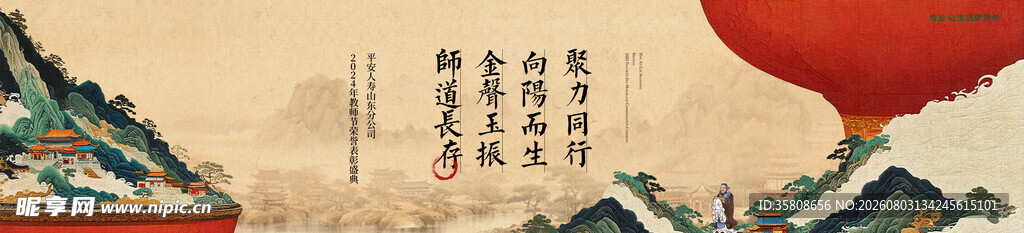 聚力同行
向陽而生
金聲玉振
師道長存
平安人寿山东分公司
2024年教师节荣誉表彰盛典
昵享网 www.nipic.cn
ID:35808656 NO:20260803134245615101